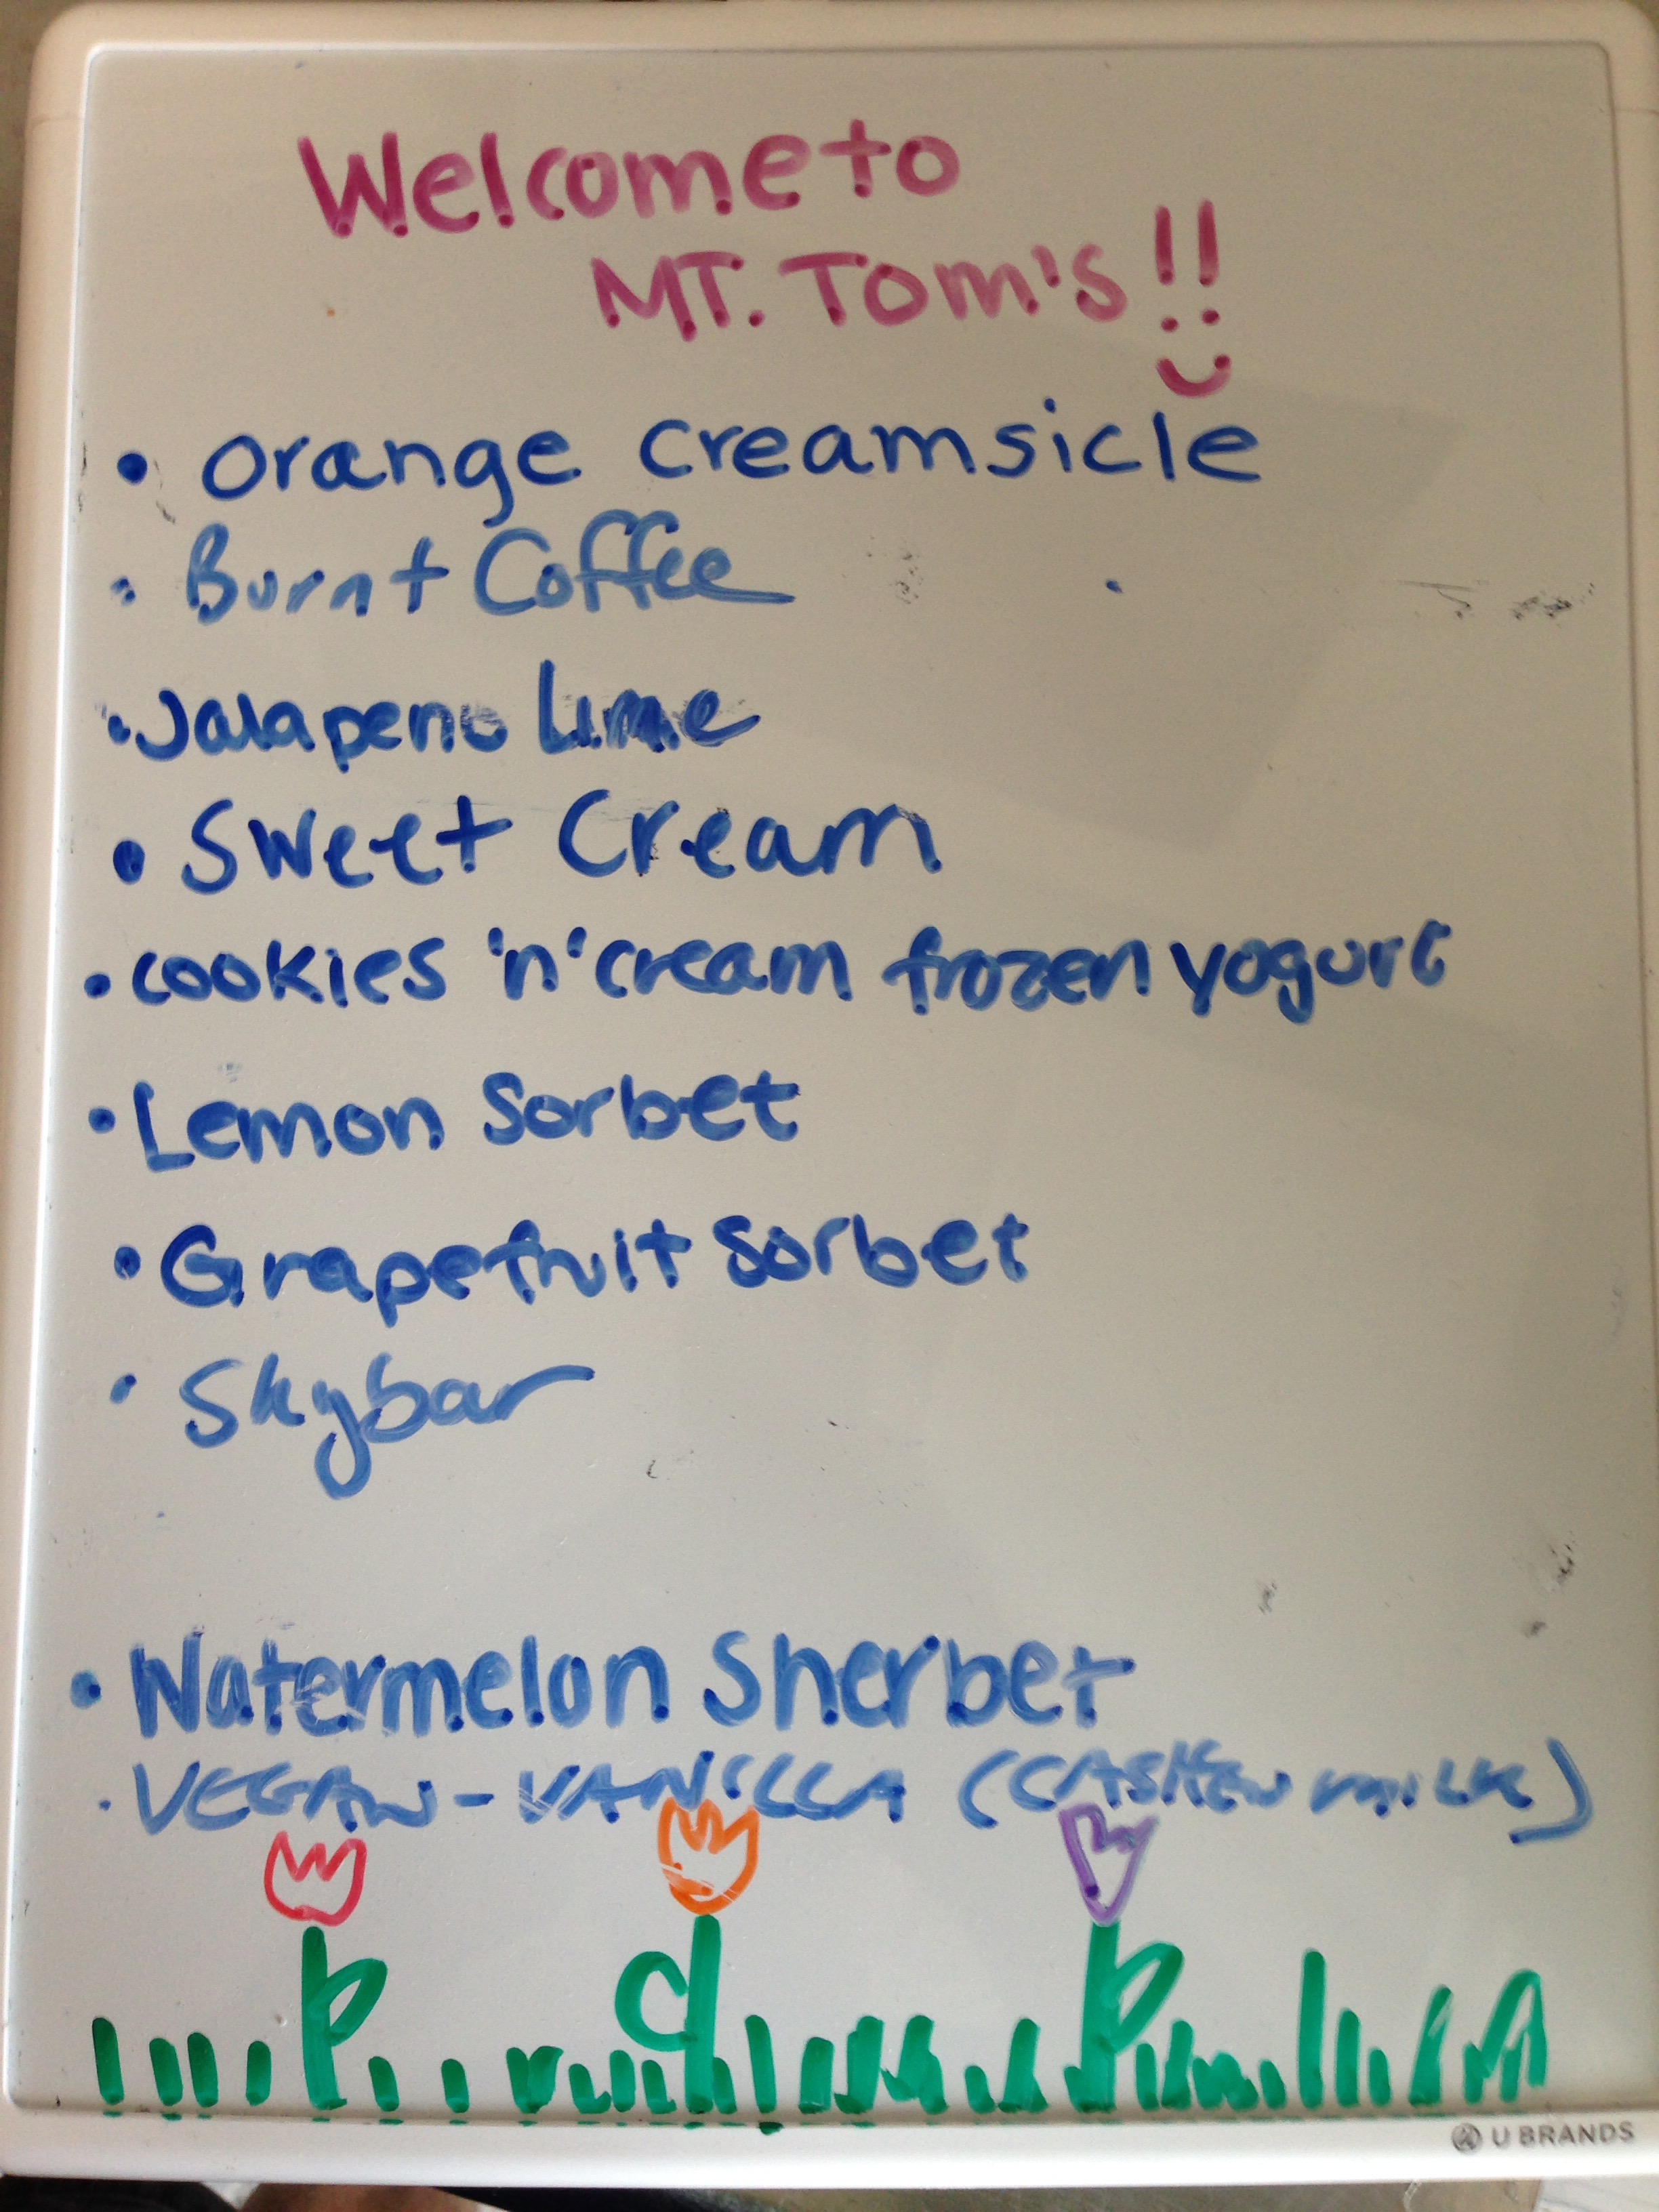 Welcome to
MT. Tom's!!
• Orange Creamsicle
• Burnt Coffee
• Jalapeno Lime
• Sweet Cream
• cookies 'n' cream frozen yogurt
• Lemon Sorbet
• Grapefruit Sorbet
• Skybar
• Watermelon Sherbet
• VEGAN - VANILLA (CASHEW MILK)
U BRANDS